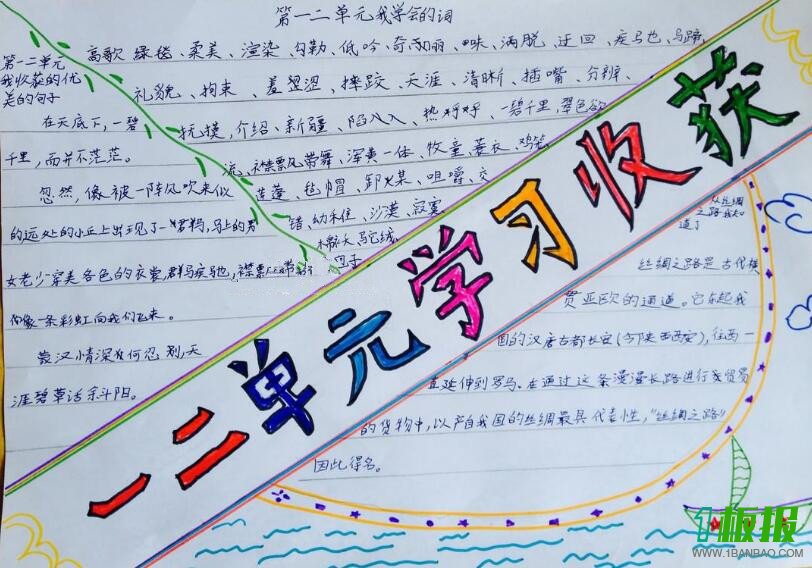 第一二单元我学会的词
高歌 绿毯、柔美、渲染、勾勒、低吟、奇
洒脱、迂回、疾马也、马蹄
礼貌、拘束、羞涩、摔跤、天涯、清晰、插嘴、分辨、
抚摸、介绍、新疆、陷入、热
一碧千里,翠色欲
流、襟飘带舞、浑黄一体、牧童、蓑衣、鸡笼
莲蓬、毡帽、卸煤、咀嚼、交
错、幼稚、沙漠、寂寞
第一二单元
我收获的优
美的句子
在天底下,一碧
千里,而并不茫茫。
忽然,像被一阵风吹来似
的远处的小丘上出现了一群马,马上的男
女老少穿美各色的衣裳,群马疾驰,襟飘带舞
像一条彩虹向我们飞来。
蒙汉情深何忍别,天
涯碧草话斜阳。
一二单元学习收获
从丝绸
之路我知
道了
丝绸之路是古代横
贯亚欧的通道。它东起我
国的汉唐古都长安(今陕西西安),往西一
直延伸到罗马。在通过这条漫漫长路进行贸易
的货物中,以产自我国的丝绸最具代表性,“丝绸之路”
因此得名。
1板报
WWW.1BANBAO.COM